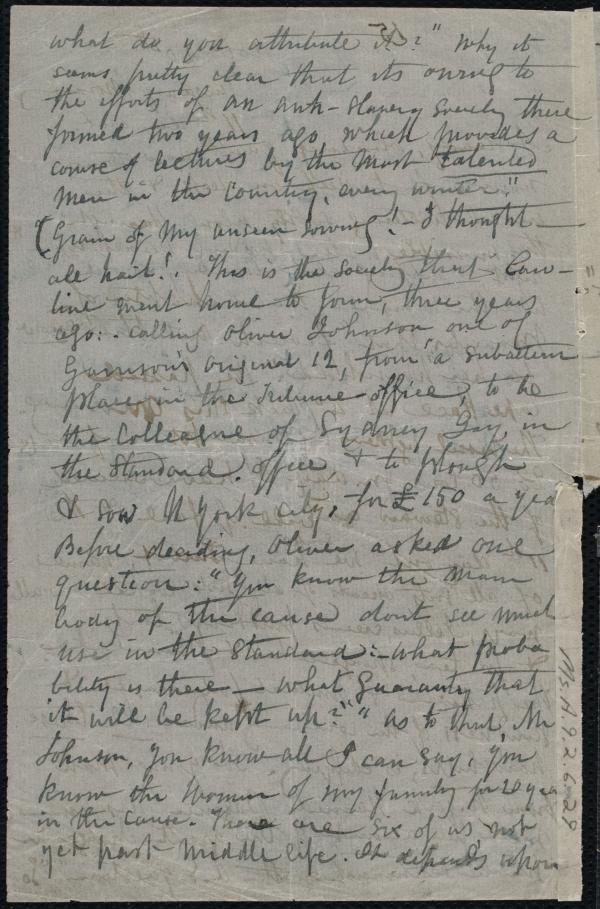 what do you attribute it?" Why it
seems pretty clear that its owing to
the efforts of an anti-Slavery Society there
formed two years ago which provides a
course of lectures by the most talented
men in the country, every winter."
(Grain of my unseen sowing! - I thought -
all hail!. This is the society that Caro-
line went home to form, three years
ago: - calling Oliver Johnson one of
Garrison's original 12, from a subaltern
place in the Tribune-office, to be
the Colleague of Sydney Gay, in
the Standard office, & to plough
& sow N York city, for £150 a yea
Before deciding, Oliver asked one
question: "You know the main
body of the cause dont see much
use in the Standard: - what proba
bility is there - what guaranty that
it will be kept up?" "as to that, Mr
Johnson, you know all I can say, you
know the women of my family for 20 yea
in the cause. There are six of us not
yet past middle life. It depends upon
Ms.A.9.2.6.29